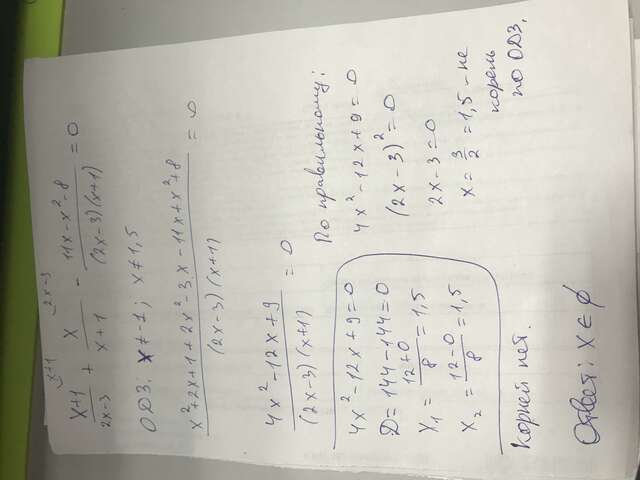 x+1 2x-3
(x+1)/(2x-3) + x/(x+1) - (11x-x²-8)/((2x-3)(x+1)) = 0
ОДЗ: x≠-1; x≠1,5
(x²+2x+1+2x²-3x-11x+x²+8)/((2x-3)(x+1)) = 0
(4x²-12x+9)/((2x-3)(x+1)) = 0
4x²-12x+9=0
D=144-144=0
x₁=(12+0)/8=1,5
x₂=(12-0)/8=1,5
По правильному:
4x²-12x+9=0
(2x-3)²=0
2x-3=0
x=3/2=1,5-не
корень
по ОДЗ.
Корней нет.
Ответ: x∈∅